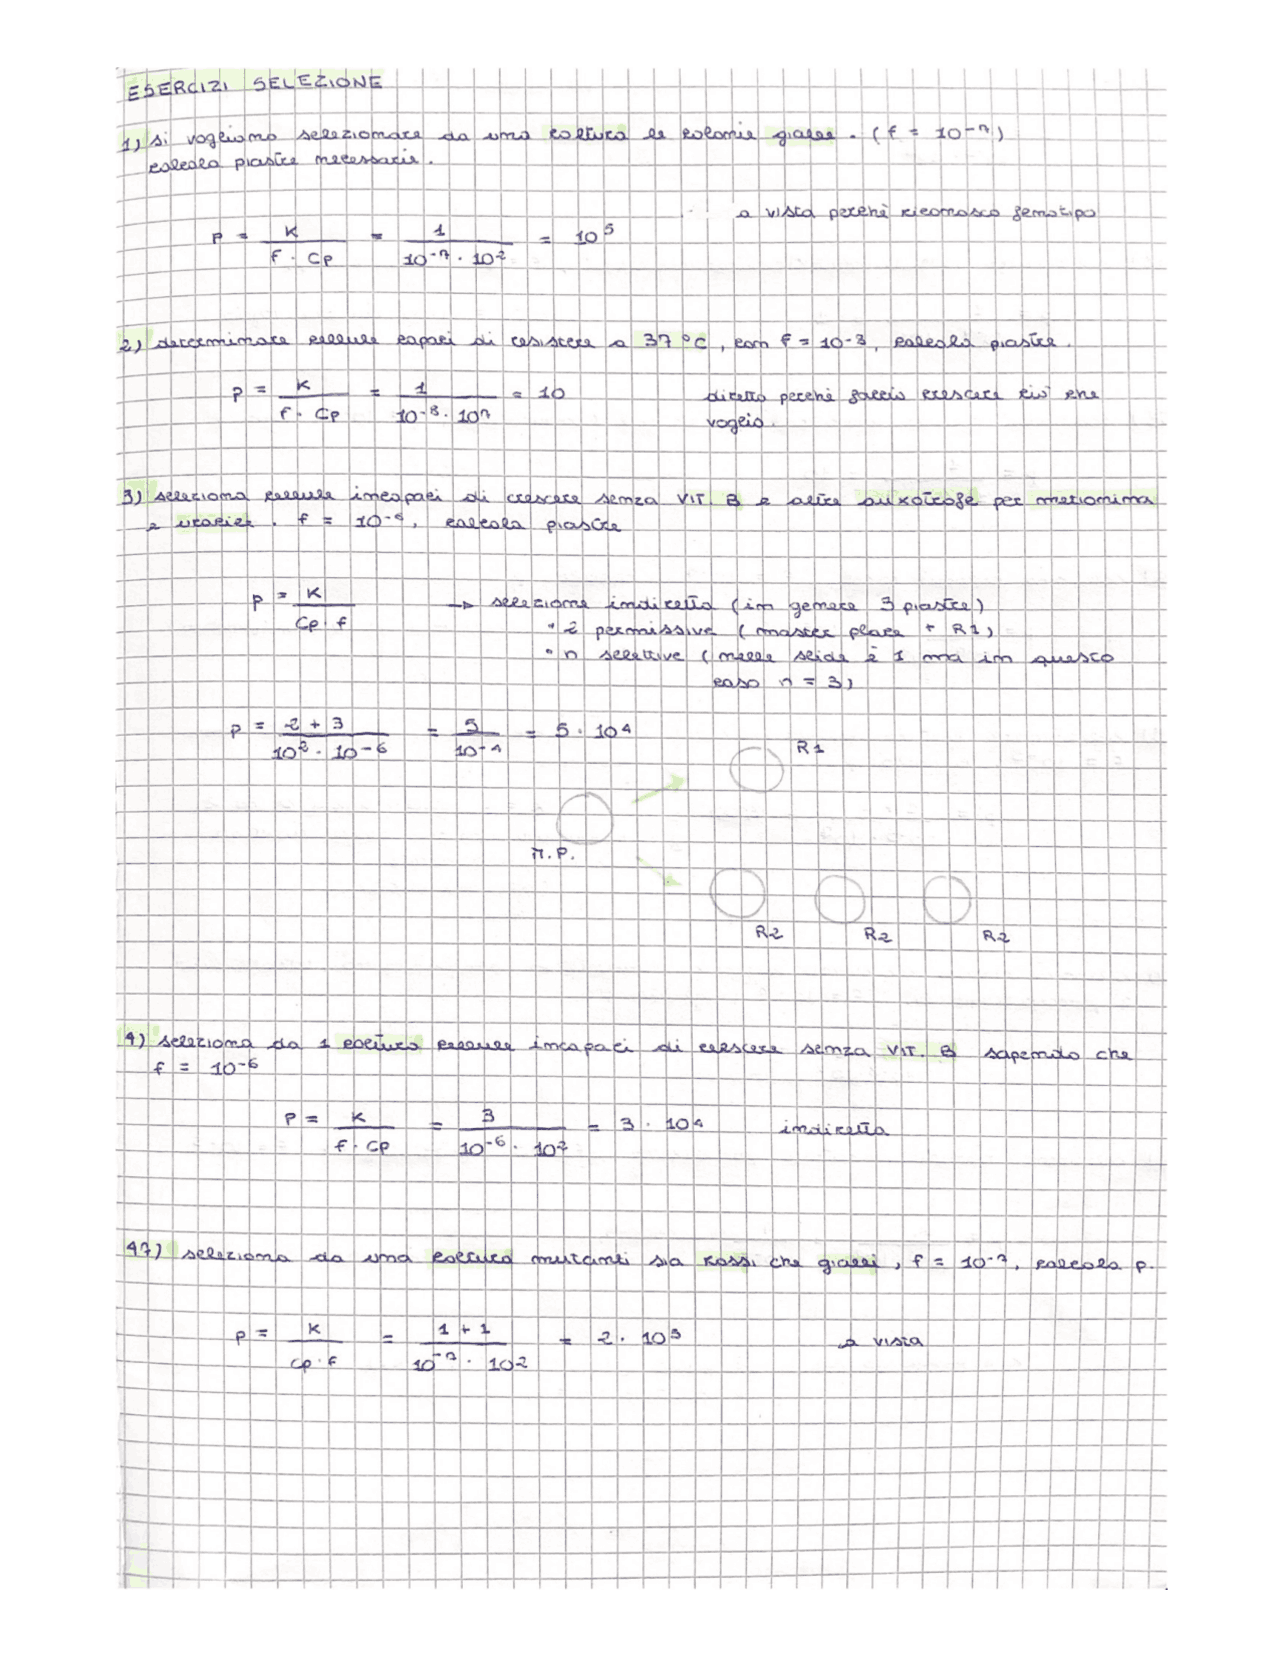 ESERCIZI SELEZIONE
1) si vogliono selezionare da una coltura le colonie gialle. (f = 10-7)
calcola piastre necessarie.
a vista perché riconosco genotipo
P = K / f · Cp = 1 / 10-7 · 10² = 10⁵
2) determinare cellule capaci di resistere a 37°C, con f = 10-8, calcola piastre.
P = K / f · Cp = 1 / 10-8 · 10⁷ = 10 diretto perché faccio crescere ciò che
voglio.
3) seleziona cellule incapaci di crescere senza VIT. B e altre auxotrofe per metionina
e uracile. f = 10-6, calcola piastre
P = K / Cp · f → selezione indiretta (in genere 3 piastre)
• 2 permissive (master place + R1)
• n selettive (nelle slide è 1 ma in questo
caso n = 3)
P = 2 + 3 / 10² · 10-6 = 5 / 10-4 = 5 · 10⁴
R1
M.P.
R2 R2 R2
4) seleziona da 1 coltura cellule incapaci di crescere senza VIT. B sapendo che
f = 10-6
P = K / f · Cp = 3 / 10-6 · 10² = 3 · 10⁴ indiretta
47) seleziona da una coltura mutanti sia rossi che gialli, f = 10-7, calcola p.
P = K / Cp · f = 1 + 1 / 10-7 · 10² = 2 · 10⁵ a vista